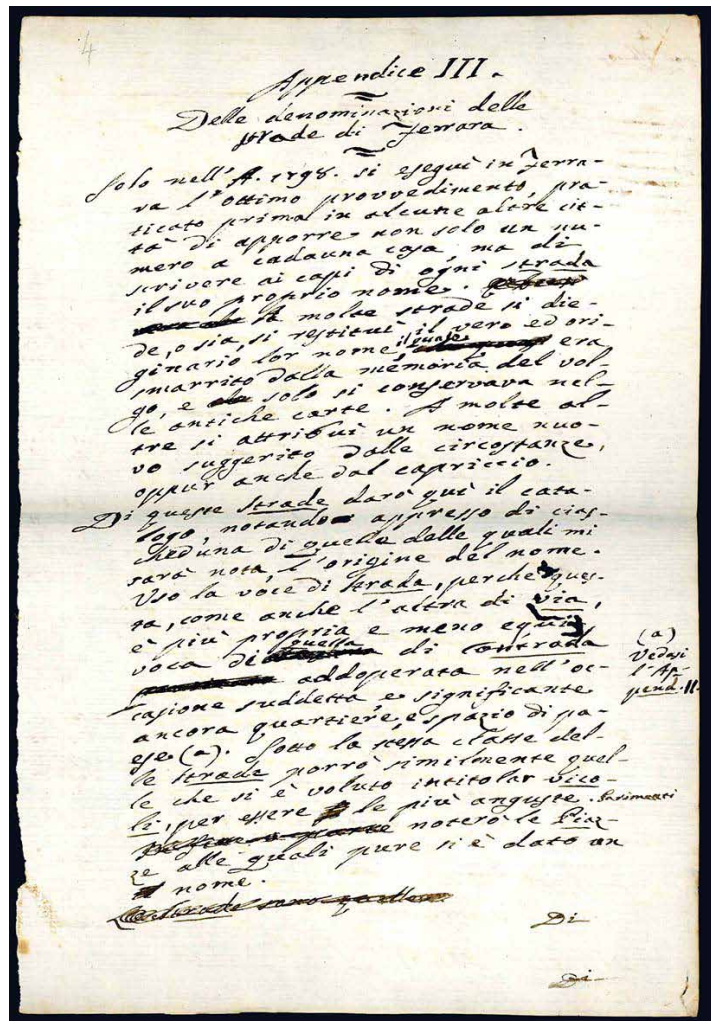 4
Appendice III.
Delle denominazioni delle
strade di Ferrara.
Solo nell'A. 1798. si eseguì in Ferra-
ra l'ottimo provvedimento, pra-
ticato prima in alcune altre cit-
tà di apporre non solo un nu-
mero a cadauna casa, ma di
scrivere ai capi di ogni strada
il suo proprio nome.
A molte strade si die-
de, o sia, si restituì il vero ed ori-
ginario lor nome, il quale era
smarrito dalla memoria del vol-
go, e solo si conservava nel-
le antiche carte. A molte al-
tre si attribuì un nome nuo-
vo suggerito dalle circostanze,
oppur anche dal capriccio.
Di queste strade darò quì il cata-
logo, notando appresso di cias-
cheduna di quelle delle quali mi
sarà nota, l'origine del nome.
Uso la voce di strada, perchè ques-
ta, come anche l'altra di via,
è più propria e meno equi-
voca di questa di Contrada
addoperata nell'oc-
casione suddetta e significante
ancora quartiere, e spazio di pa-
ese (a). Sotto la stessa classe del-
le strade porrò similmente quel-
le che si è voluto intitolar vico-
li, per essere le più anguste. Parimenti
noterò le Piaz-
ze alle quali pure si è dato un
nome.
Le strade sono quelle
Di
Di
(a)
Vedasi
l'Ap-
pend. II.